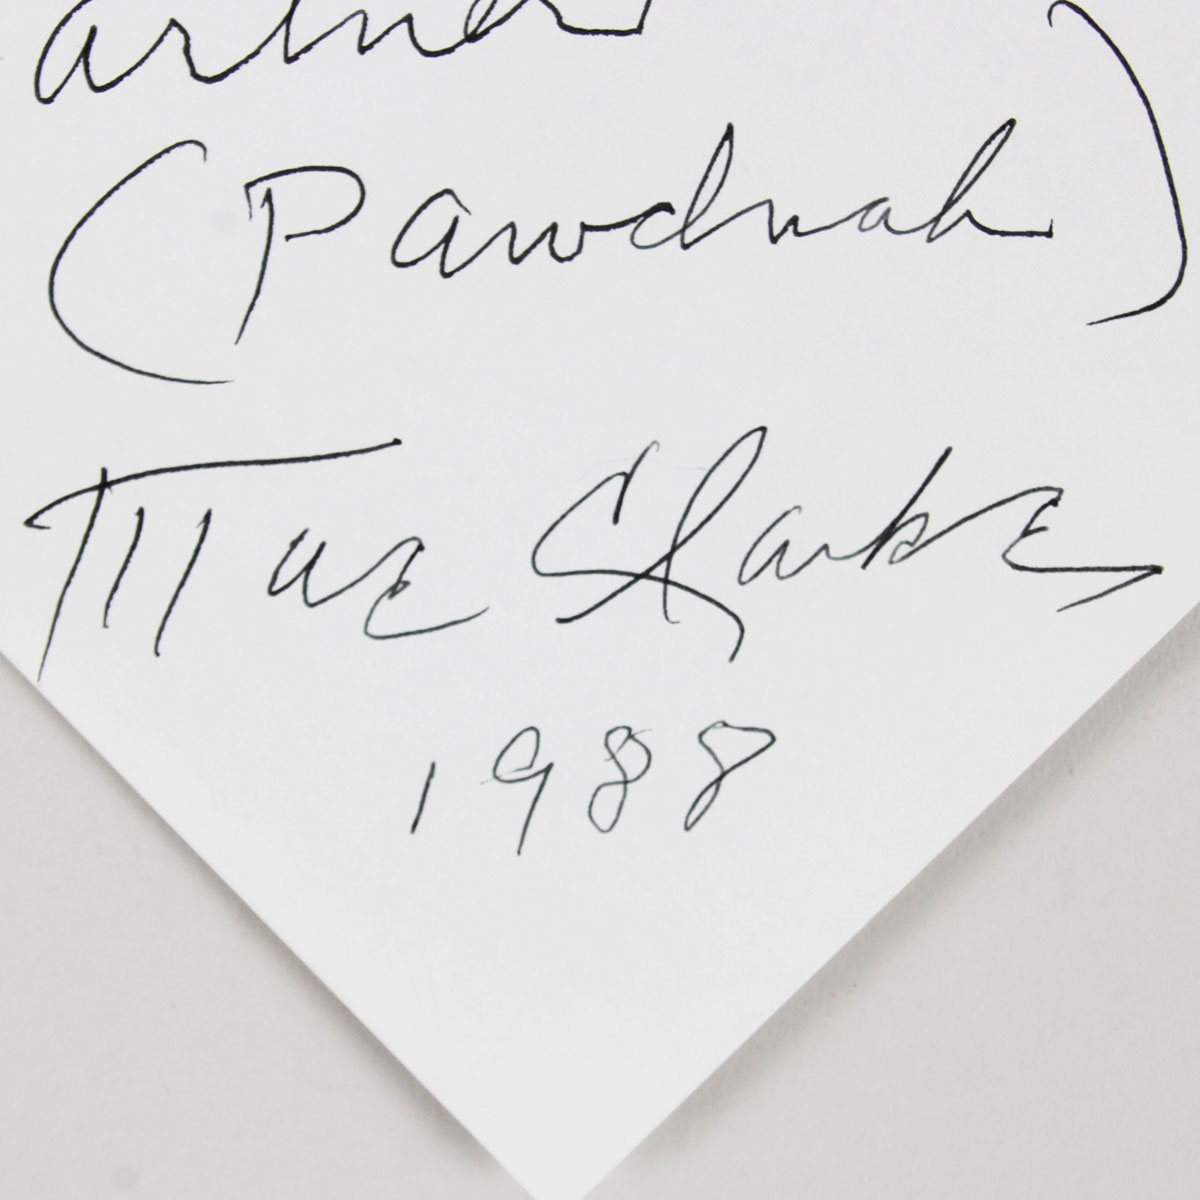 artner
(Pawdnah)
Mae Clarke
1988